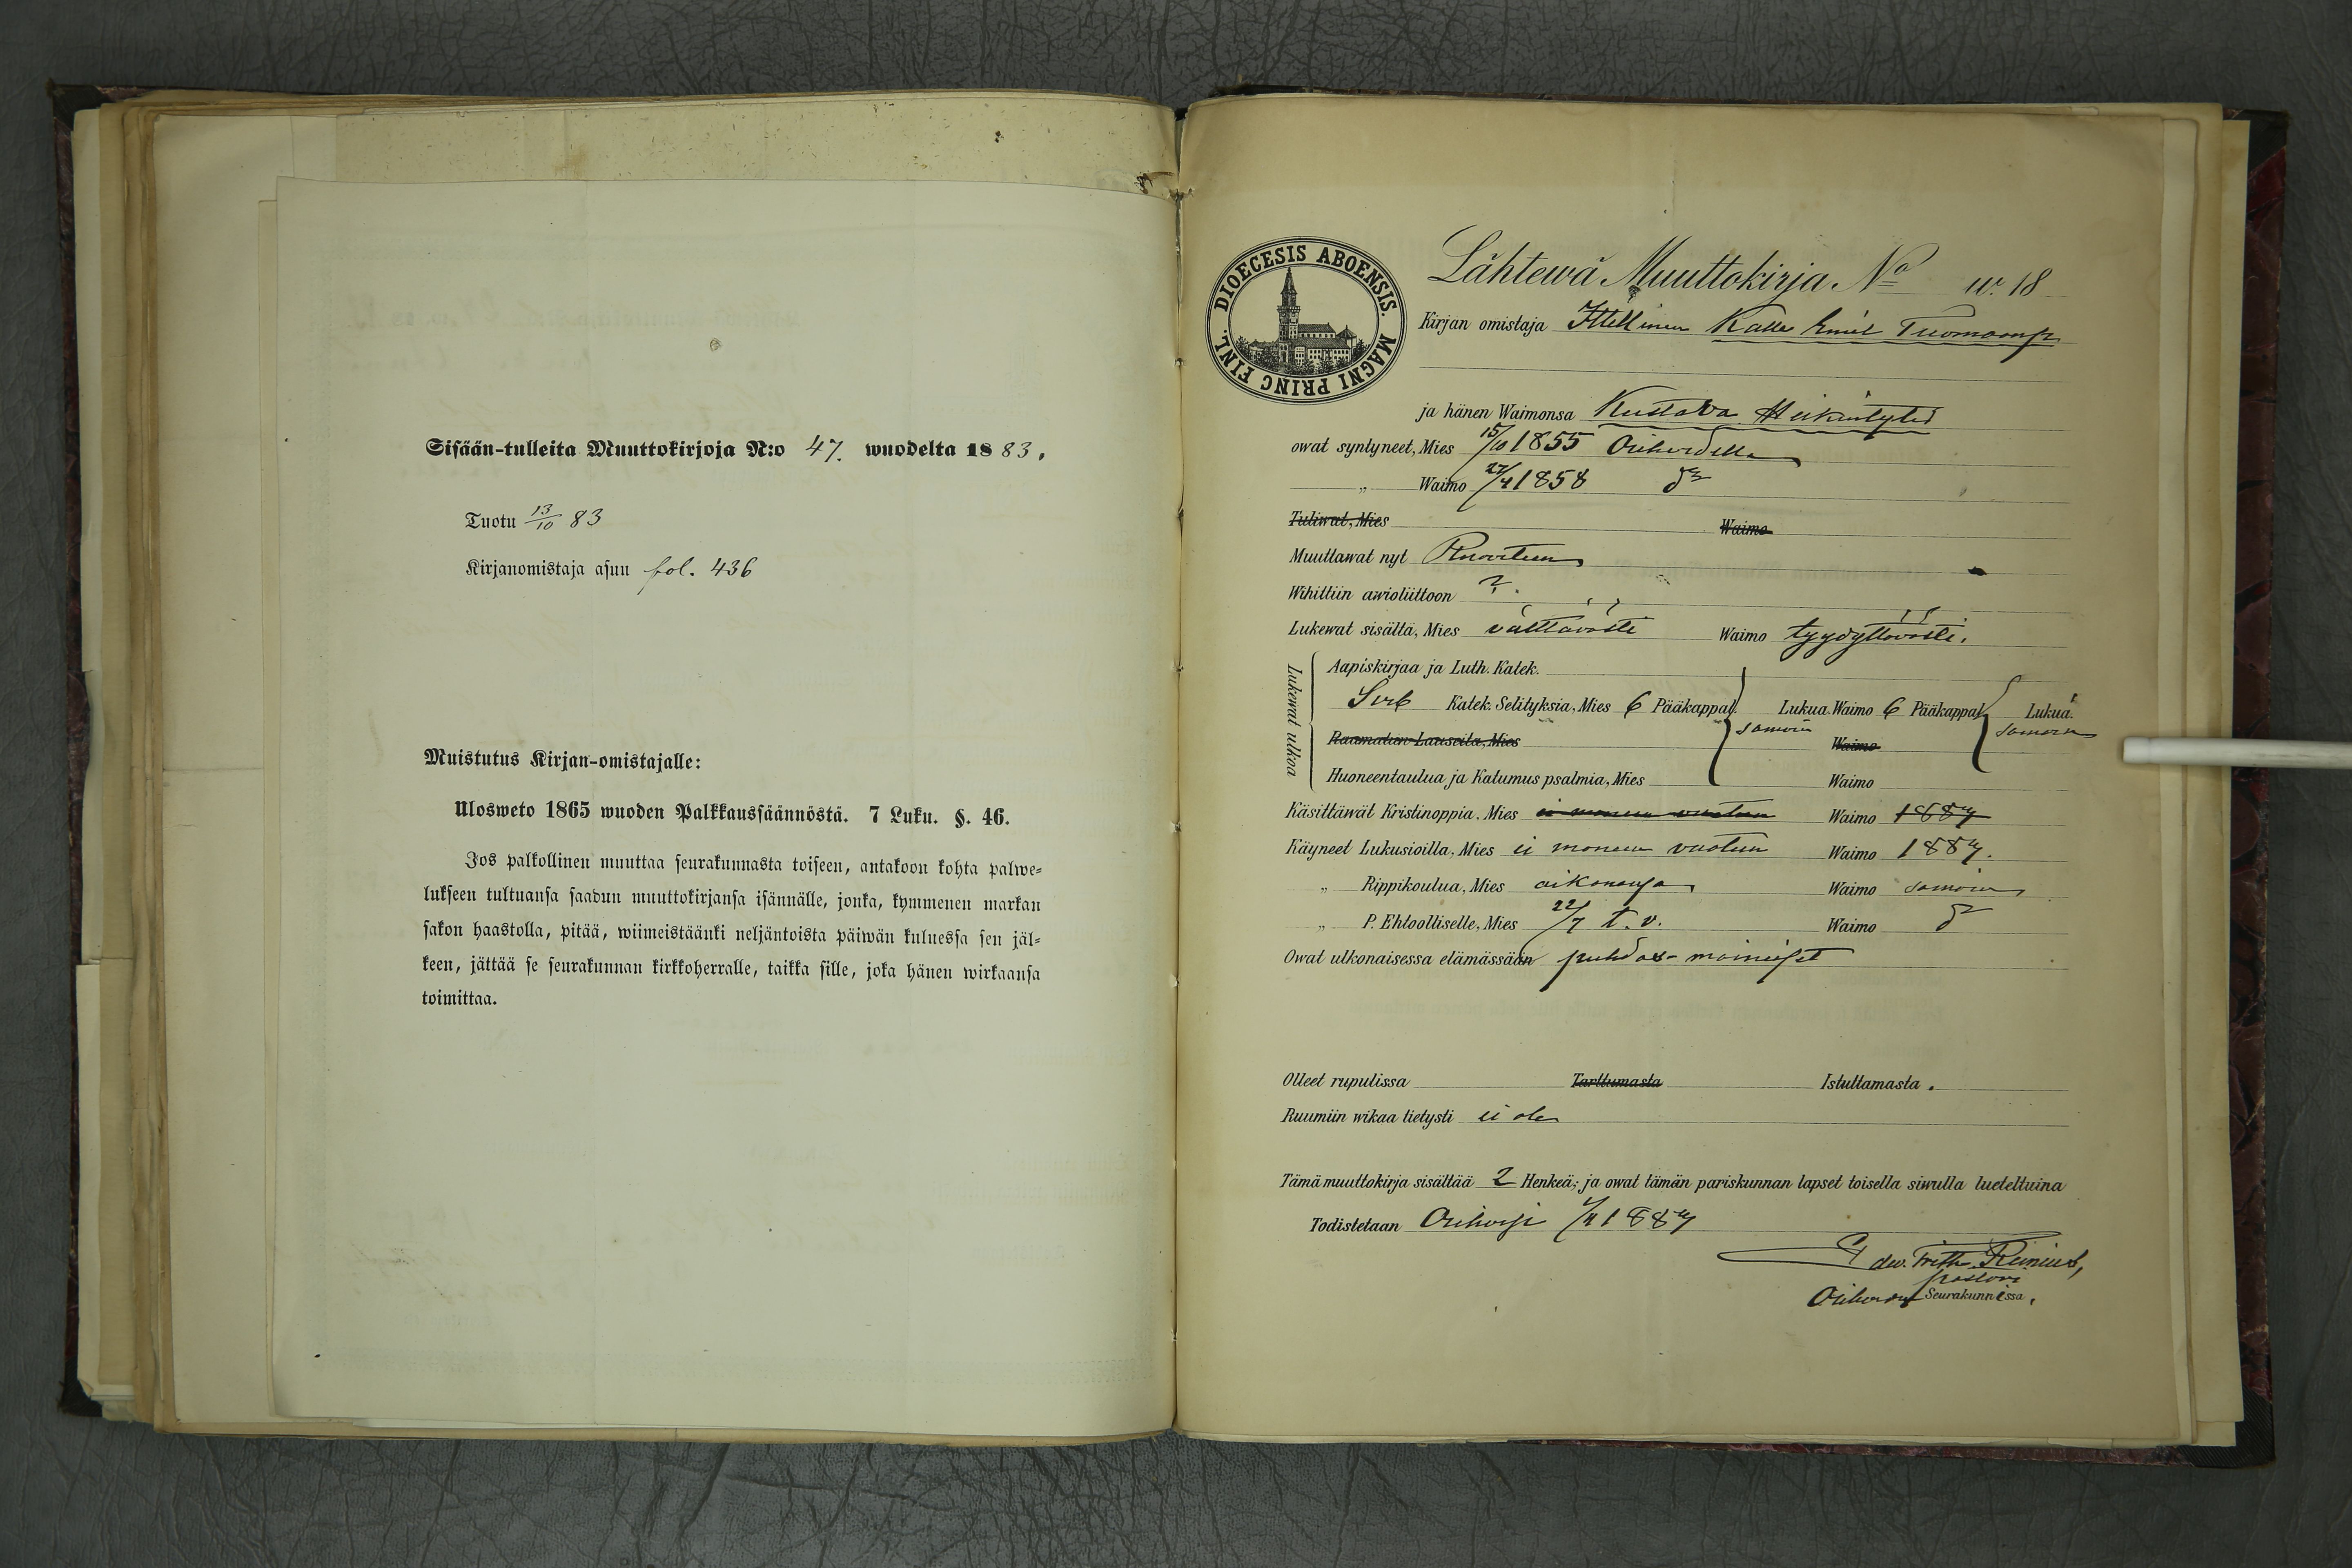 Sisään-tulleita Muuttokirjoja N:o 47. wuodelta 1883.
Tuotu 13/10 83
Kirjanomistaja asuu fol. 436
Muistutus Kirjan-omistajalle:
Ulosweto 1865 wuoden Palkkaussäännöstä. 7 Luku. §. 46.
Jos palkollinen muuttaa seurakunnasta toiseen, antakoon kohta palwe-
lukseen tultuansa saadun muuttokirjansa isännälle, jonka, kymmenen markan
sakon haastolla, pitää, wiimeistäänki neljäntoista päiwän kuluessa sen jäl-
keen, jättää se seurakunnan kirkkoherralle, taikka sille, joka hänen wirkaansa
toimittaa.
DIOECESIS ABOENSIS. MAGNI PRINC FINL.
Lähtewä Muuttokirja No w. 18
Kirjan omistaja Itellinen Kalle Emil Tuomaanp.
ja hänen Waimonsa Kustava Heikintytär
owat syntyneet, Mies 15/10 1855 Orihvedellä
„ Waimo 27/4 1858 do
Tuliwat, Mies Waimo
Muuttawat nyt Ruoveteen
Wihittiin awioliittoon ?.
Lukewat sisältä, Mies välttävästi Waimo tyydyttävästi.
Lukewat ulkoa
Aapiskirjaa ja Luth. Katek.
Katek. Selityksiä, Mies 6 Pääkappal. Lukua. Waimo 6 Pääkappal. Lukua.
samoin samoin
Raamatun Lauseita, Mies Waimo
Huoneentaulua ja Katumus psalmia, Mies Waimo
Käsittäwät Kristinoppia, Mies ei moneen vuoteen Waimo 1884
Käyneet Lukusioilla, Mies ei moneen vuoteen Waimo 1884.
„ Rippikoulua, Mies aikanansa Waimo samoin
„ P. Ehtoolliselle, Mies 22/7 t. v. Waimo do
Owat ulkonaisessa elämässään puhdas-maineiset
Olleet rupulissa Tarttumasta Istuttamasta.
Ruumiin wikaa tietysti ei ole
Tämä muuttokirja sisältää 2 Henkeä; ja owat tämän pariskunnan lapset toisella siwulla lueteltuina
Todistetaan Orihvesi 1884
Edv. Frith. Reinius,
pastori
Orihveden Seurakunnissa.